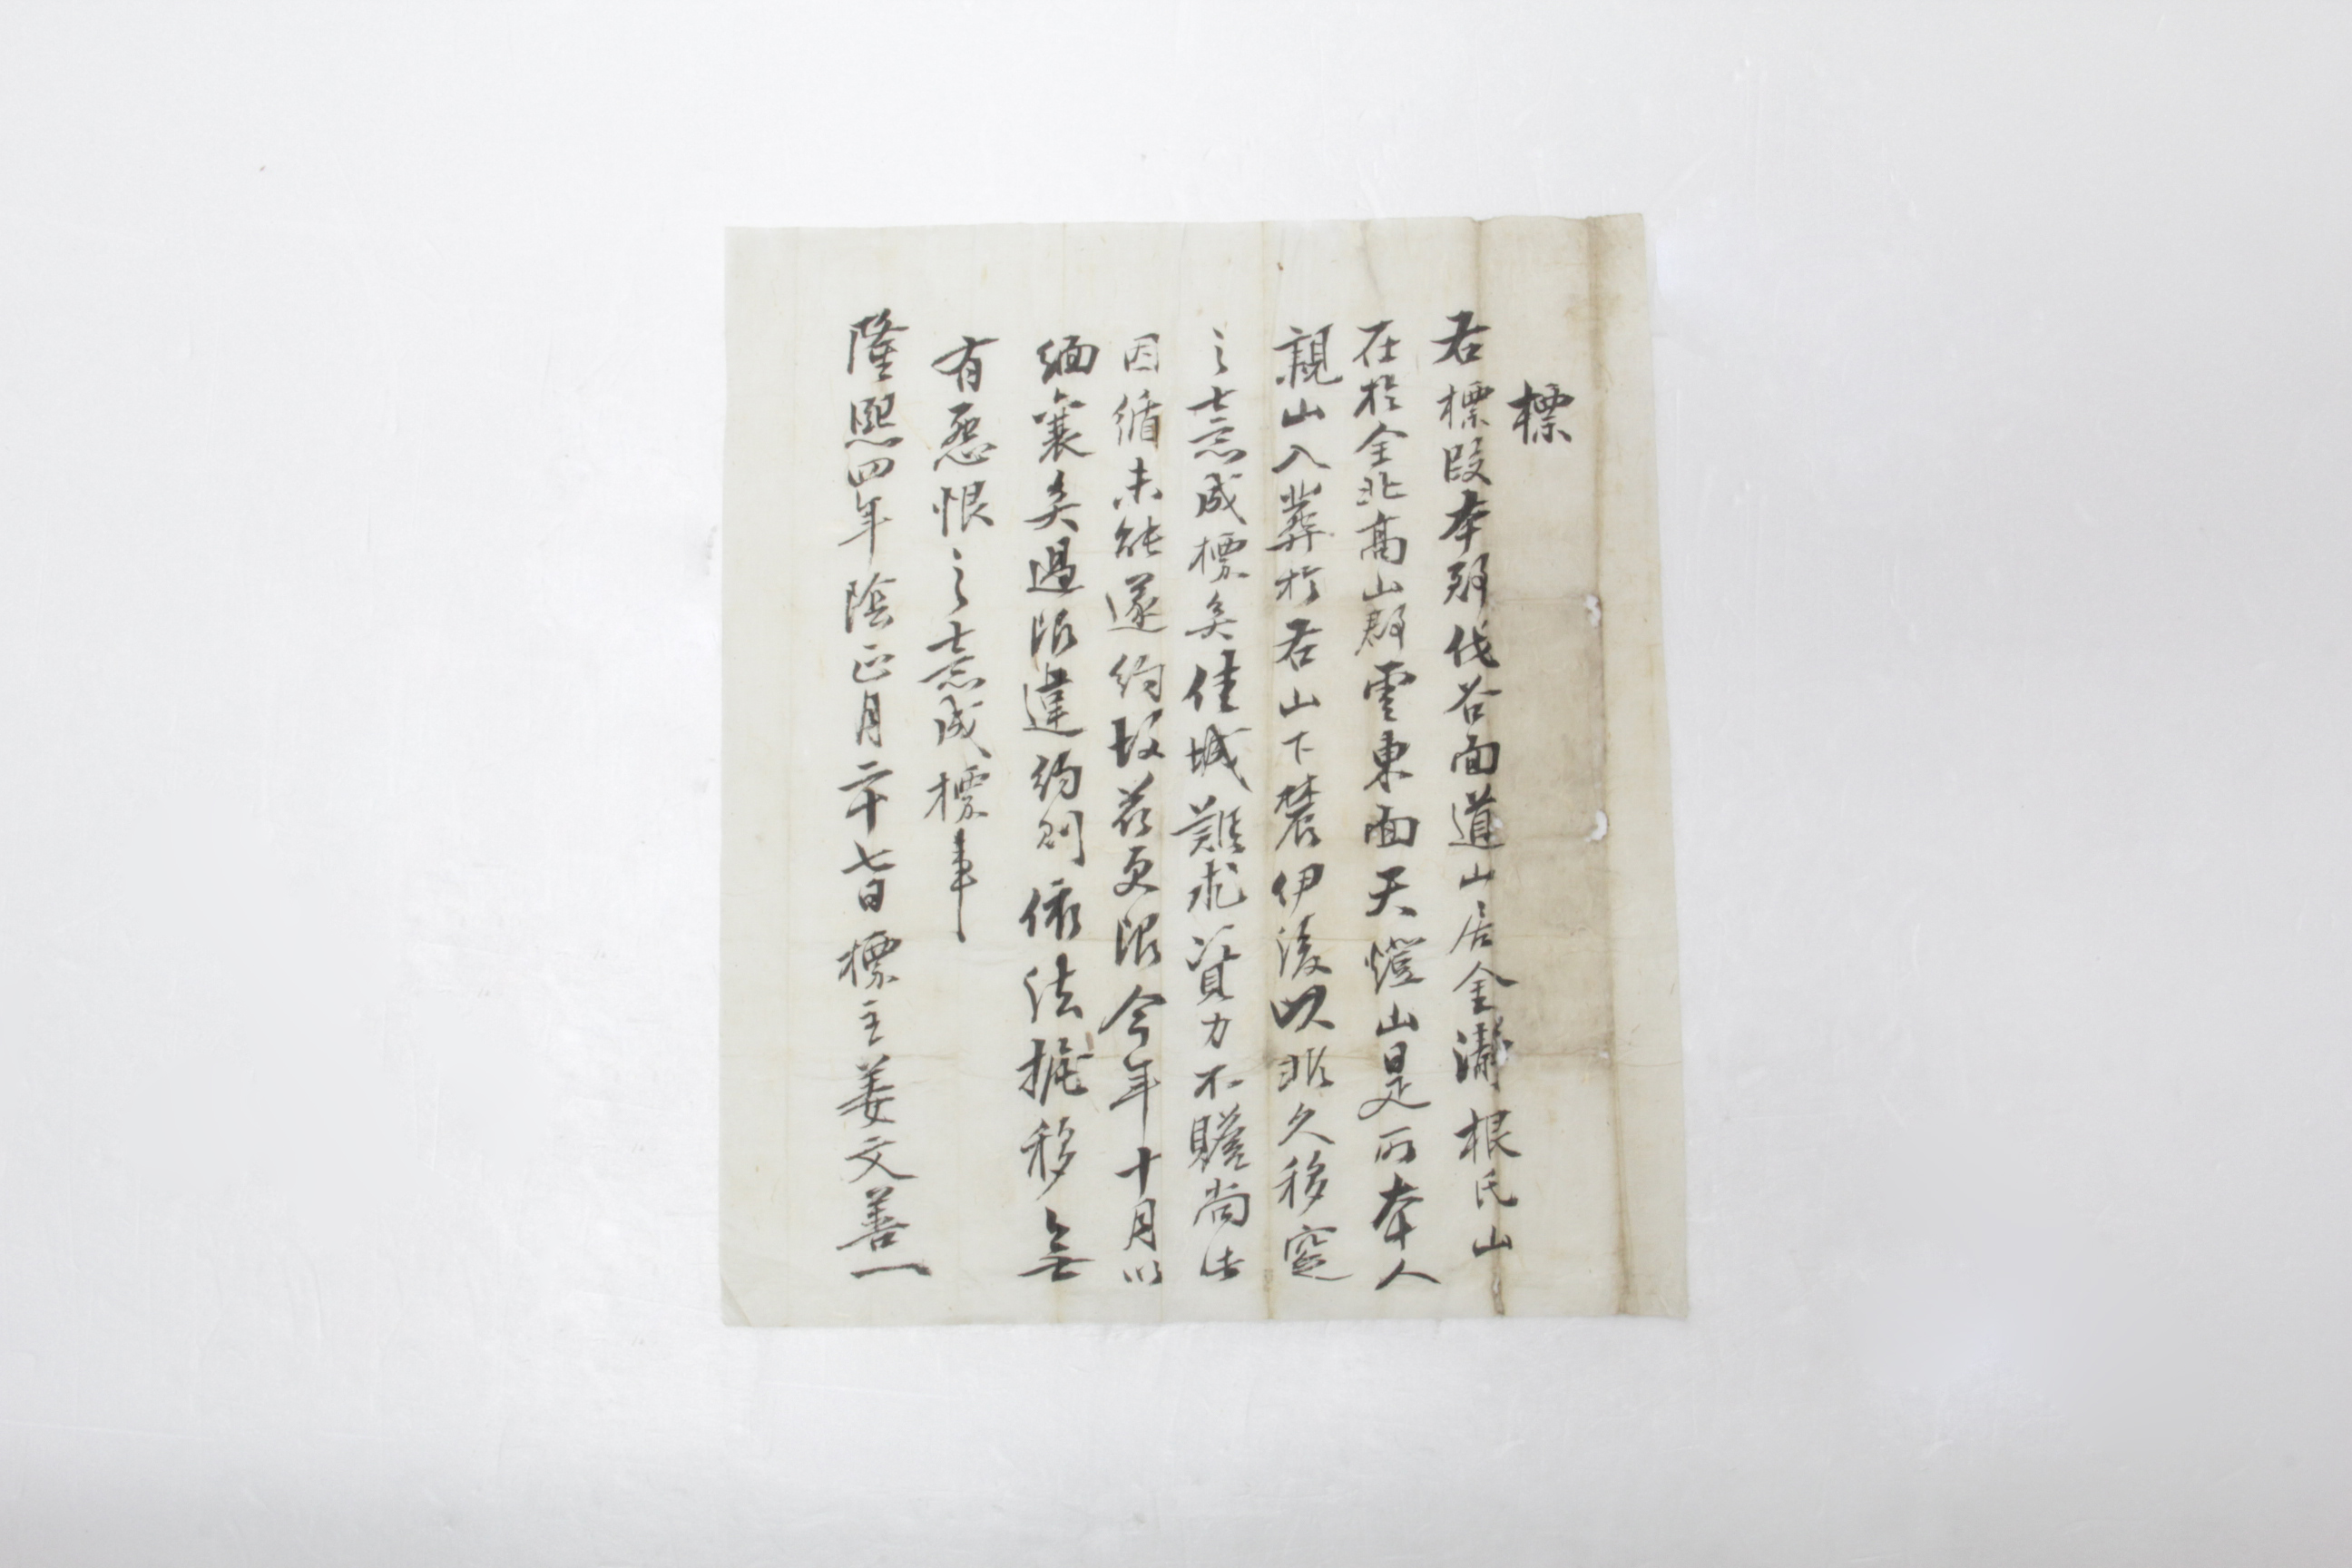 標
右標段本郡伐谷面道山居金瀟根氏山
在於全北高山郡雲東面天燈山是所本人
親山入葬於右山下麓伊後以非久移窆
之意成標矣佳城難求資力不贍尚此
因循未能遂約故玆更限今年十月以
緬襄矣過限違約則依法掘移無
有怨恨之意成標事
隆熙四年陰正月二十七日標主姜文善